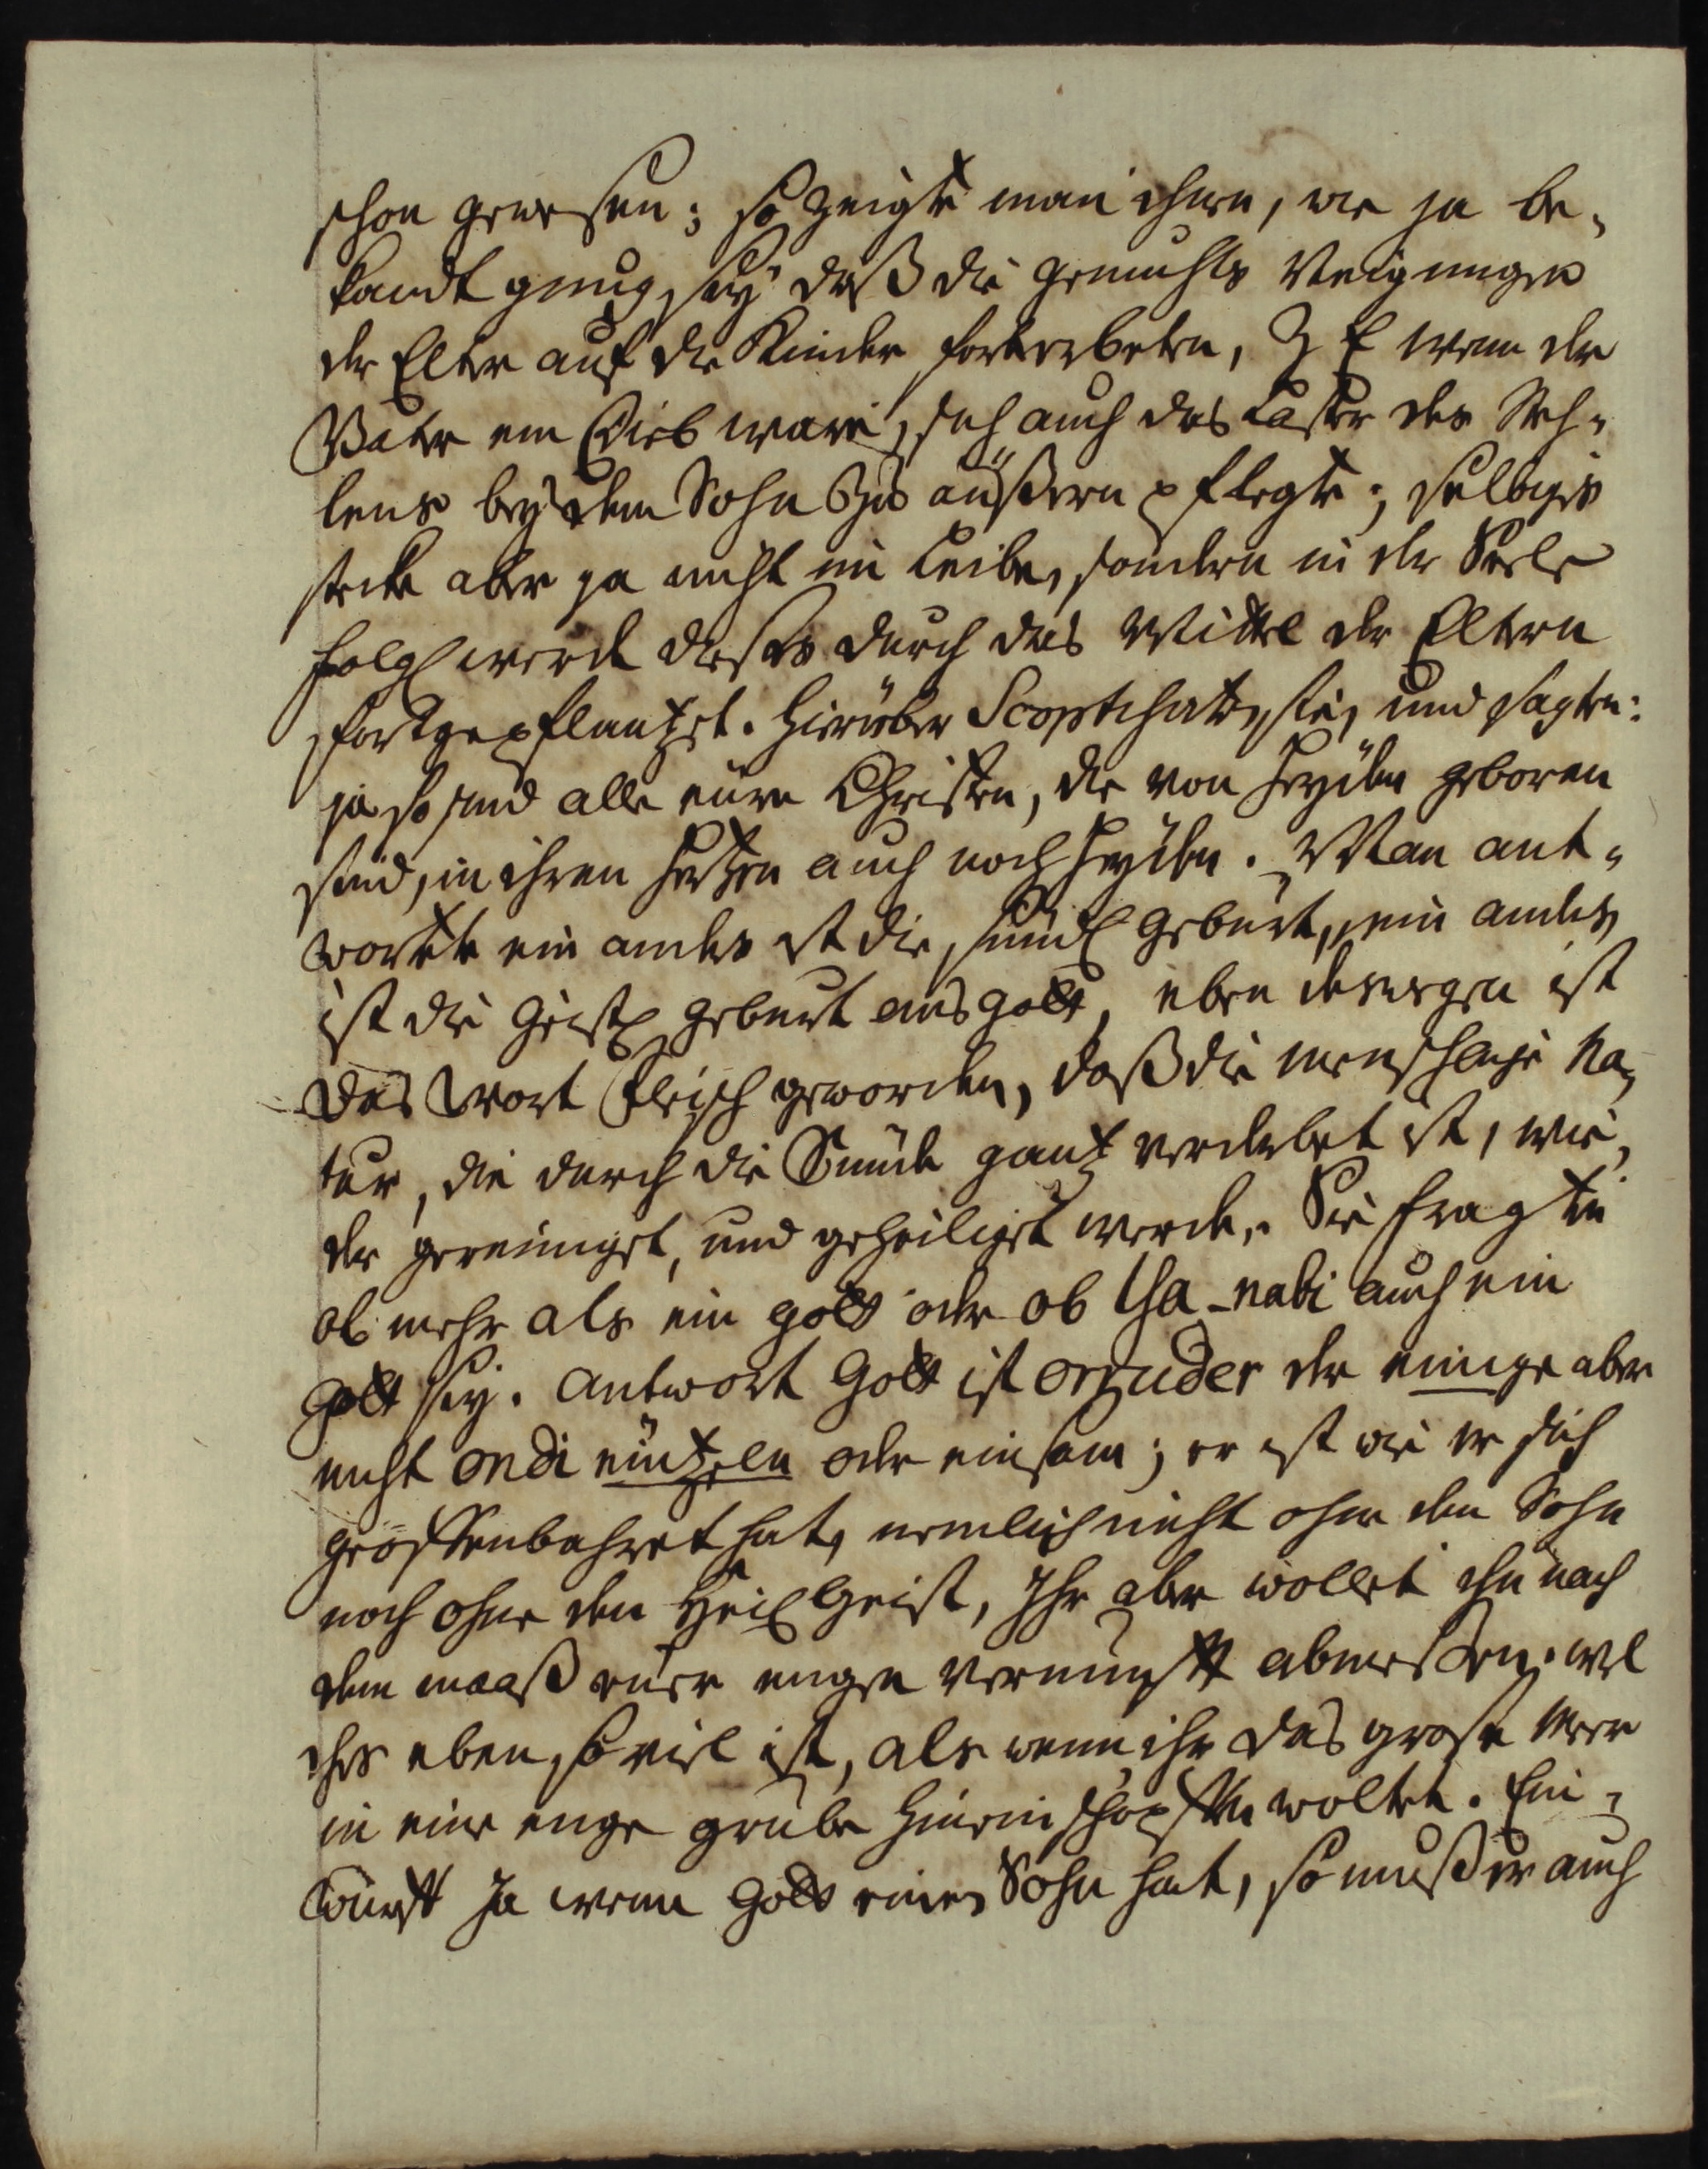 schon gewesen; so zeigte man ihnen, wie ja be-
kandt genug sey daß die gemüths Neigungen
der Elter auf die Kinder forterbeten, Z E wenn der
Vater ein Dieb wäre, sich auch das Laster des Steh-
lens bey dem Sohn zu äußern pflegte; selbiges
stecke aber ja nicht im Leibe, sondern in der Seele
folgl werde dieses durch das Mittel der Eltern
fortgepflantzet. Hierüber Scoptisirten sie, und sagten:
ja so sind alle eüre Christen, die von Heyden geboren
sind, in ihren Hertzen auch noch Heyden. Man ant-
wortete ein anders ist die sündl Geburt, ein anders
ist die Geistl Geburt aus Gott, eben deswegen ist
das Wort Fleisch geworden, daß die menschliche Na-
tur, die durch die Sünde gantz verderbet ist, wie-
der gereiniget, und geheiliget werde. Sie fragten
ob mehr als ein Gott oder ob Isa-nabi auch ein
Gott sey. Antwort Gott ist orhuder der einige aber
nicht ondi eintzeln oder einsam; er ist wie er sich
geoffenbahret hat, nemlich nicht ohne den Sohn
noch ohne den Heil Geist, Ihr aber wollet ihn nach
dem maaß eurer engen vernunfft abmeßen. wel
ches eben so viel ist, als wenn ihr das große Meer
in eine enge grube hinein schöpffen woltet. Ein-
wurff Ja wenn Gott einen Sohn hat, so muß er auch